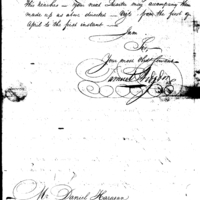 this reaches - Your next Invoice may accompany them
made up as above directed - Viz, from the first of
April to the first instant -
I am
Sir,
Your most Obed Servant
Samuel Hodgdon
Mr Daniel Harrison